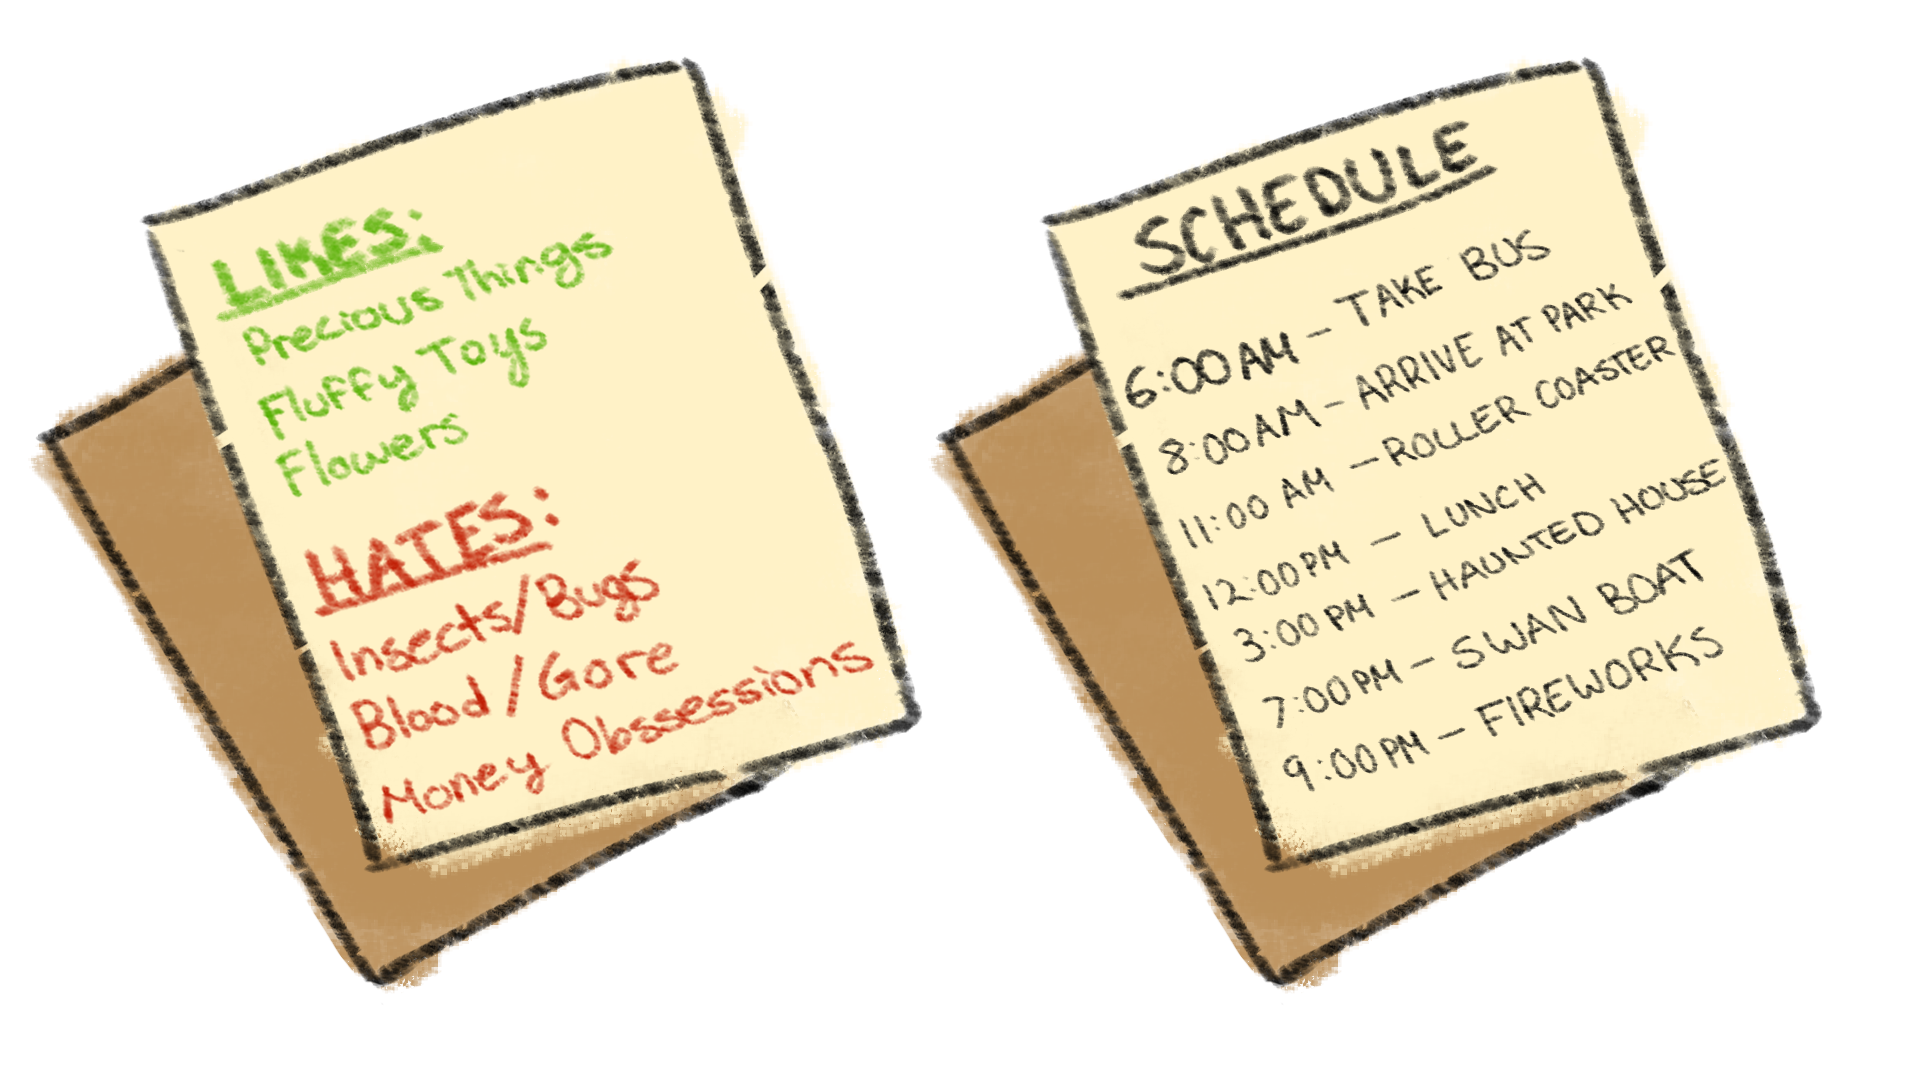 LIKES:
Precious Things
Fluffy Toys
Flowers
HATES:
Insects/Bugs
Blood/Gore
Money Obssessions
SCHEDULE
6:00AM - TAKE BUS
8:00AM - ARRIVE AT PARK
11:00 AM - ROLLER COASTER
12:00PM - LUNCH
3:00PM - HAUNTED HOUSE
7:00PM - SWAN BOAT
9:00PM - FIREWORKS